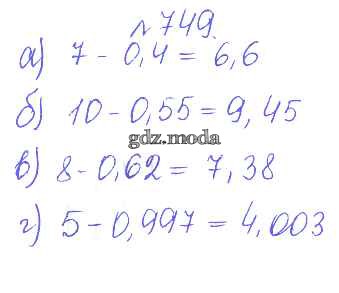 №749.
а) 7 - 0,4 = 6,6
б) 10 - 0,55 = 9,45
gdz.moda
в) 8 - 0,62 = 7,38
г) 5 - 0,997 = 4,003